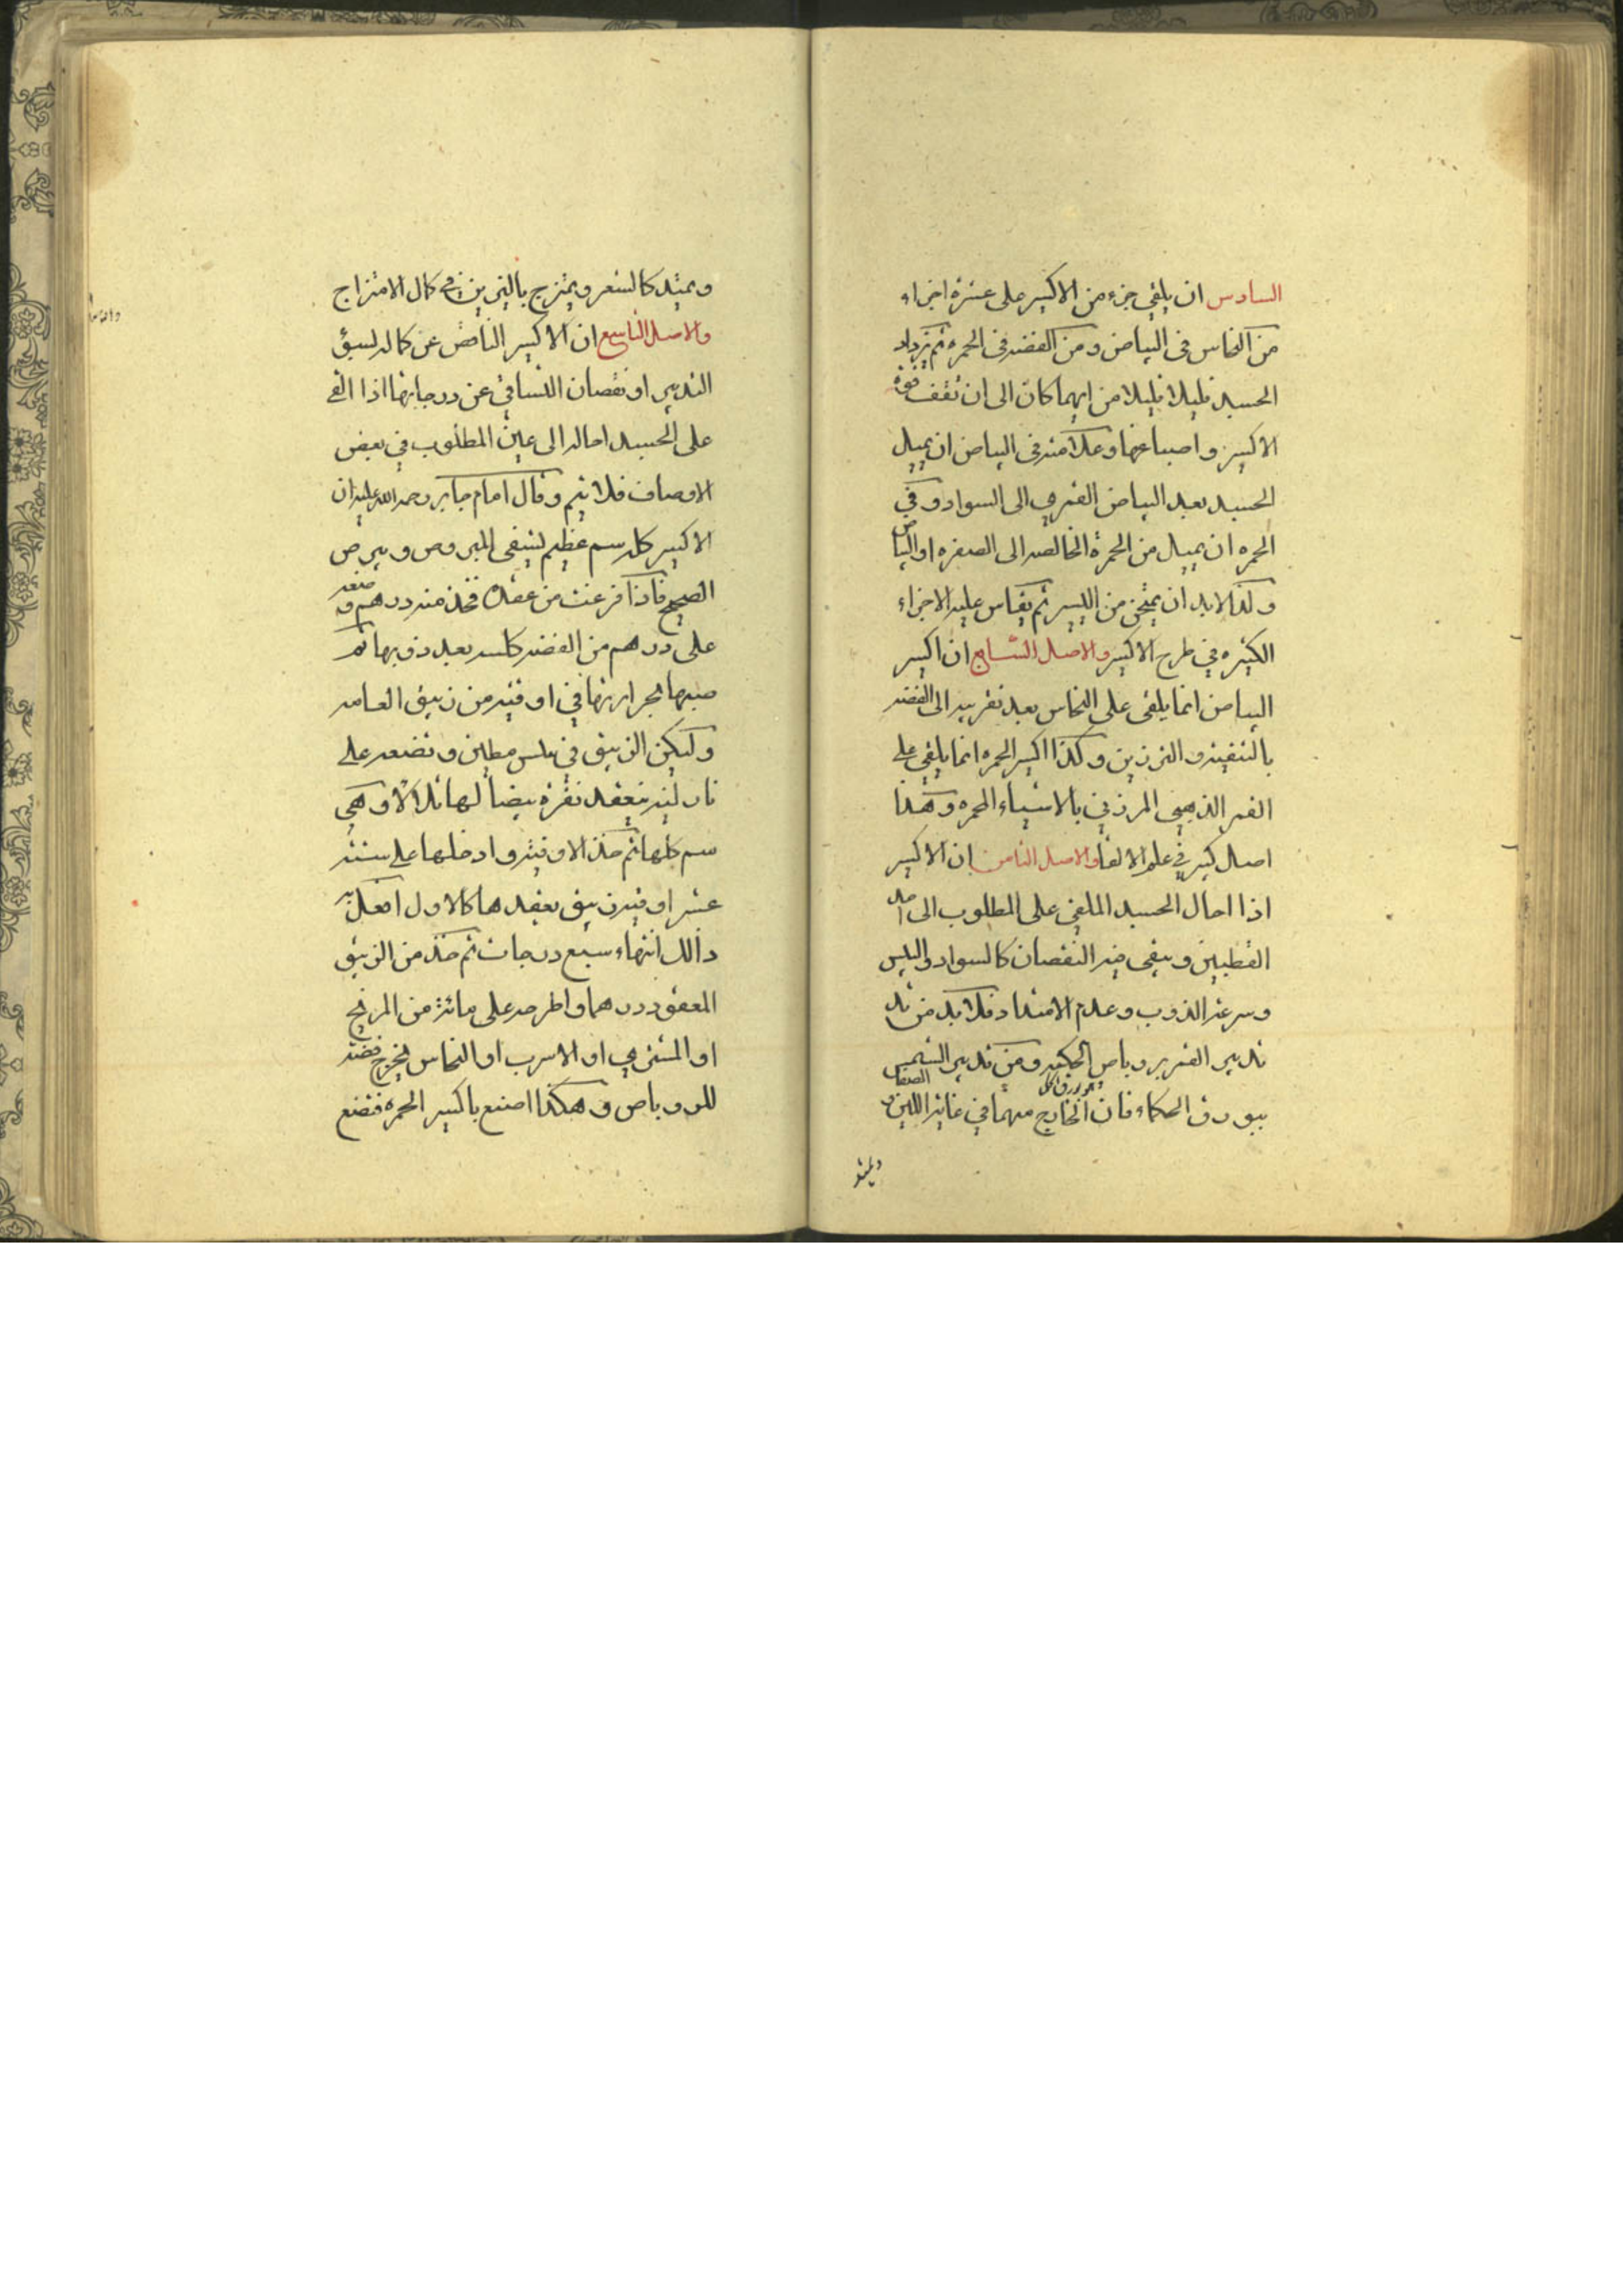 السادس ان يلقي جزء من الاكسير على عشرة اجزاء
من النحاس في البياض ومن الفضه في الحمره ثم تزداد
الجسد قليلا قليلا من ايهما كان الى ان تقف قوة
الاكسير واصباغها وعلامته في البياض ان يميل
الجسد بعد البياض القمري الى السواد وفي
الحمره ان يميل من الحمرة الخالصه الى الصفره او البياض
وكذا لابد ان يمتحن من اليسير ثم يقاس عليه الاجزاء
الكثيره في طرح الاكسير والاصل السابع ان اكسير
البياض انما يلقى على النحاس بعد تقريبه الى الفضه
بالتنقيه والترزين وكذا اكسير الحمره انما يلقي على
القمر الذهبي المرزن بالاشياء المحمره وهذا
اصل كبير في علم الالقا والاصل الثامن ان الاكسير
اذا احال الجسد الملقي على المطلوب الى احد
القطبين وبقي فيه النقصان كالسواد واليبس
وسرعة الذوب وعدم الامتداد فلابد من
تدبير القمر بروباص الحكمه ومن تدبير الشمس
ببورق الحكماء فان الخارج منهما في غاية اللين و الصفا
ويمتد
ويمتد كالشعر ويمتزج بالنيرين في كمال الامتزاج
والاصل التاسع ان الاكسير الناقص عن كماله لسوء
التدبير او نقصان التساقي عن درجاتها اذا القي
على الجسد احاله الى عين المطلوب في بعض
الاوصاف فلا يتم وقال امام جابر رحمه الله عليه ان
الاكسير كله سم عظيم يشفي المبروص ويبرص
الصحيح فاذا فرغت من عقده فخذ منه درهم وضعه
على درهم من الفضه كلسه بعد ذوبها ثم
صبها بحرارتها في اوقيه من زيبق العامه
وليكن الزيبق في مطين وتضعه على
نار لينه ينعقد نقرة بيضا لها تلالاؤ وهي
سم كلها ثم خذ الاوقيه وادخلها على ستة
عشر اوقيه زيبق يعقدها كالاول افعل به
ذالك انتهاء سبع درجات ثم خذ من الزيبق
المعقود درهما واطرحه على مائة من المريخ
او المشتري او الاسرب او النحاس يخرج فضة
للروباص وهكذا اصنع باكسير الحمره فتضع